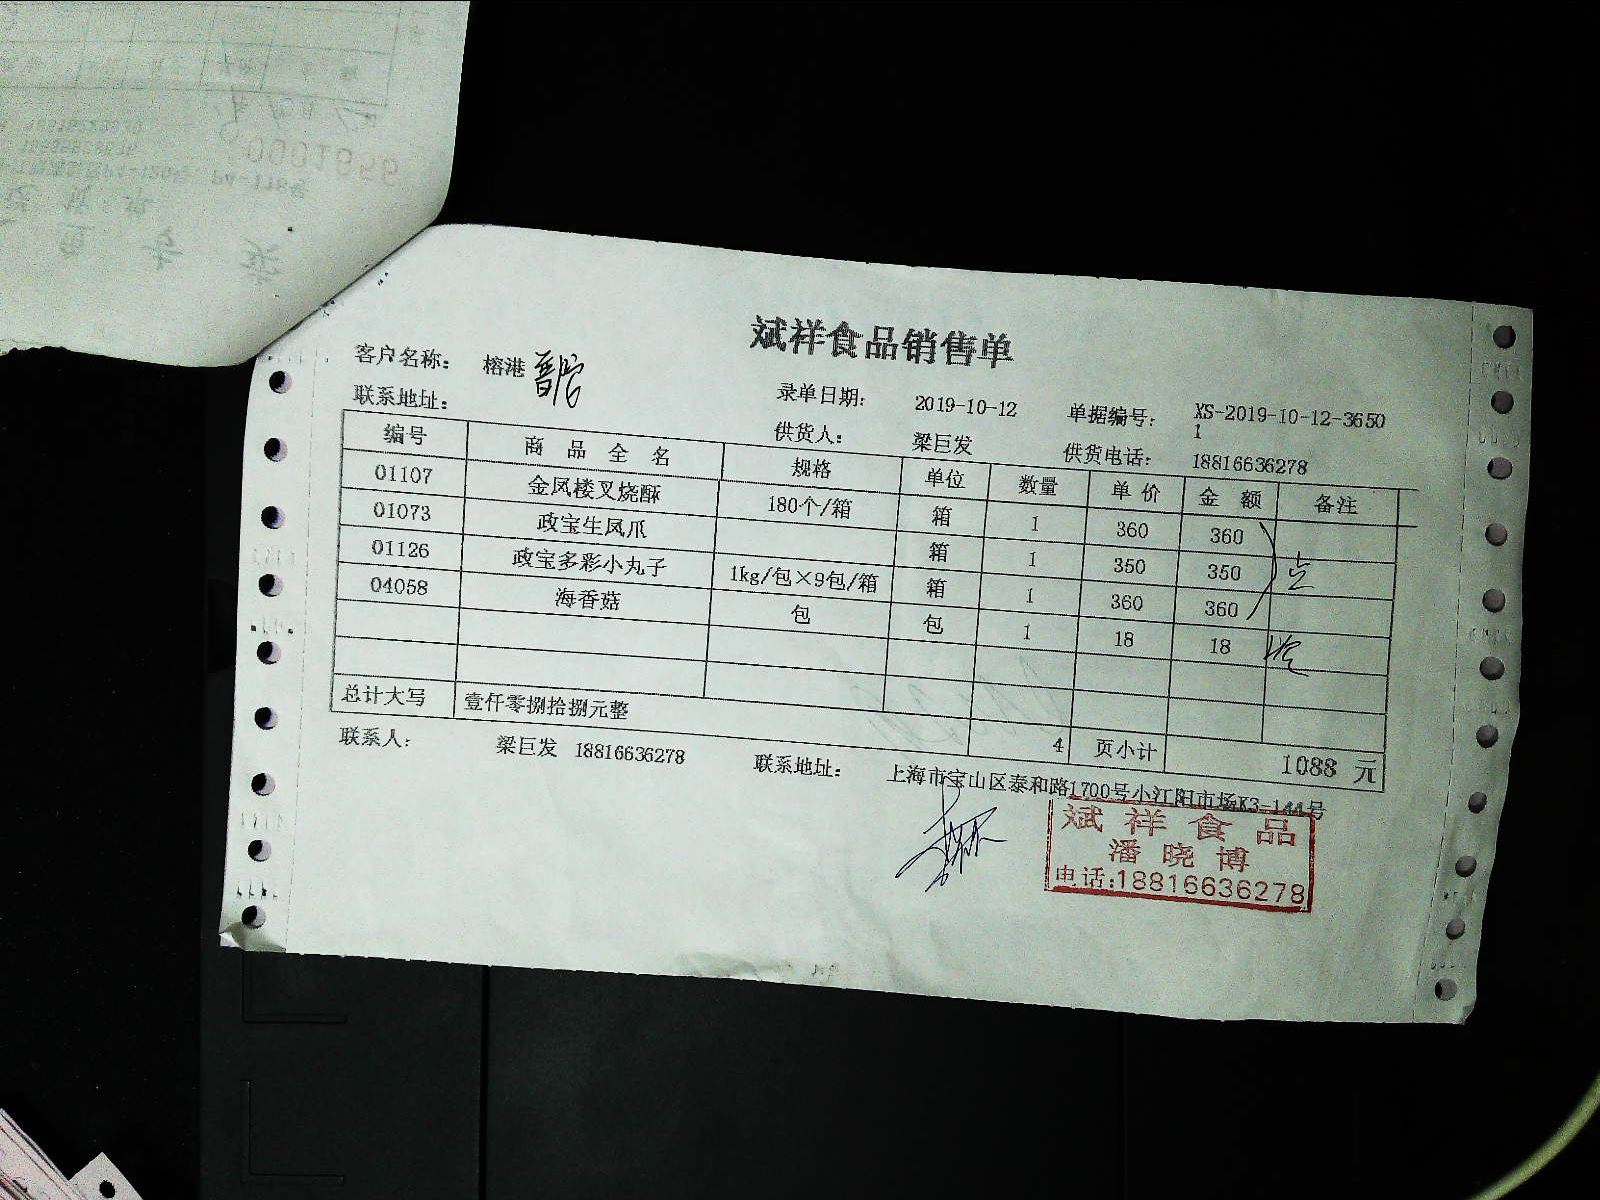 斌祥食品销售单
客户名称： 榕港
录单日期： 2019-10-12 单据编号： XS-2019-10-12-36501
联系地址：
供货人： 梁巨发 供货电话： 18816636278
编号 商品全名 规格 单位 数量 单价 金额 备注
01107 金凤楼叉烧酥 180个/箱 箱 1 360 360
01073 政宝生凤爪 箱 1 350 350
01126 政宝多彩小丸子 1kg/包×9包/箱 箱 1 360 360
点
04058 海香菇 包 包 1 18 18
总计大写 壹仟零捌拾捌元整 4 页小计 1088 元
联系人： 梁巨发 18816636278 联系地址： 上海市宝山区泰和路1700号小江阳市场K3-144号
斌祥食品
潘晓博
电话:18816636278
0001956